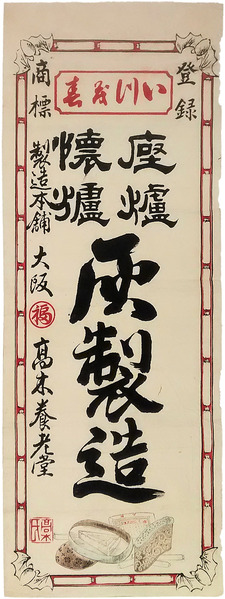 登録
商標
いつ茂春
座爐
懐爐
灰製造
製造本舗 大阪 福 髙木養老堂